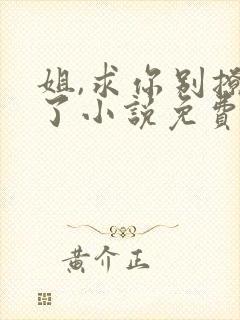 姐,求你别撩
了小説免費
黄介正